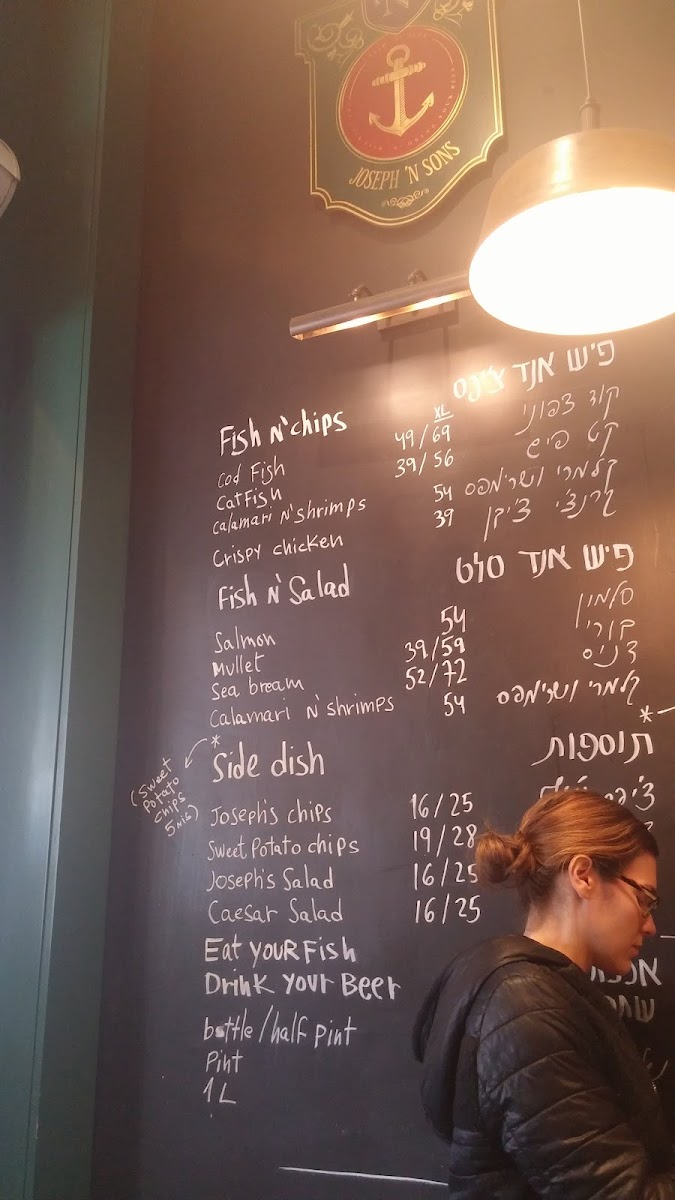 JOSEPH 'N SONS
פיש אנד צ'יפס
Fish N' chips
XL
Cod Fish 49/69 קוד צפוני
Catfish 39/56 קט פיש
Calamari N' shrimps 54 קלמרי ושרימפס
Crispy chicken 39 קרנצ'י צ'יקן
Fish N' Salad פיש אנד סלט
Salmon 54 סלמון
Mullet 39/59 בורי
Sea bream 52/72 דניס
Calamari N' shrimps 54 קלמרי ושרימפס
* Side dish תוספות *
(Sweet
Potato
chips
5 nis)
Joseph's chips 16/25
Sweet Potato chips 19/28
Joseph's Salad 16/25
Caesar Salad 16/25
Eat your Fish
Drink your Beer
bottle/half pint
Pint
1 L